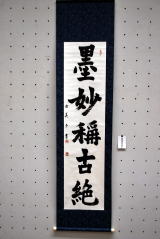 墨妙稱古絶